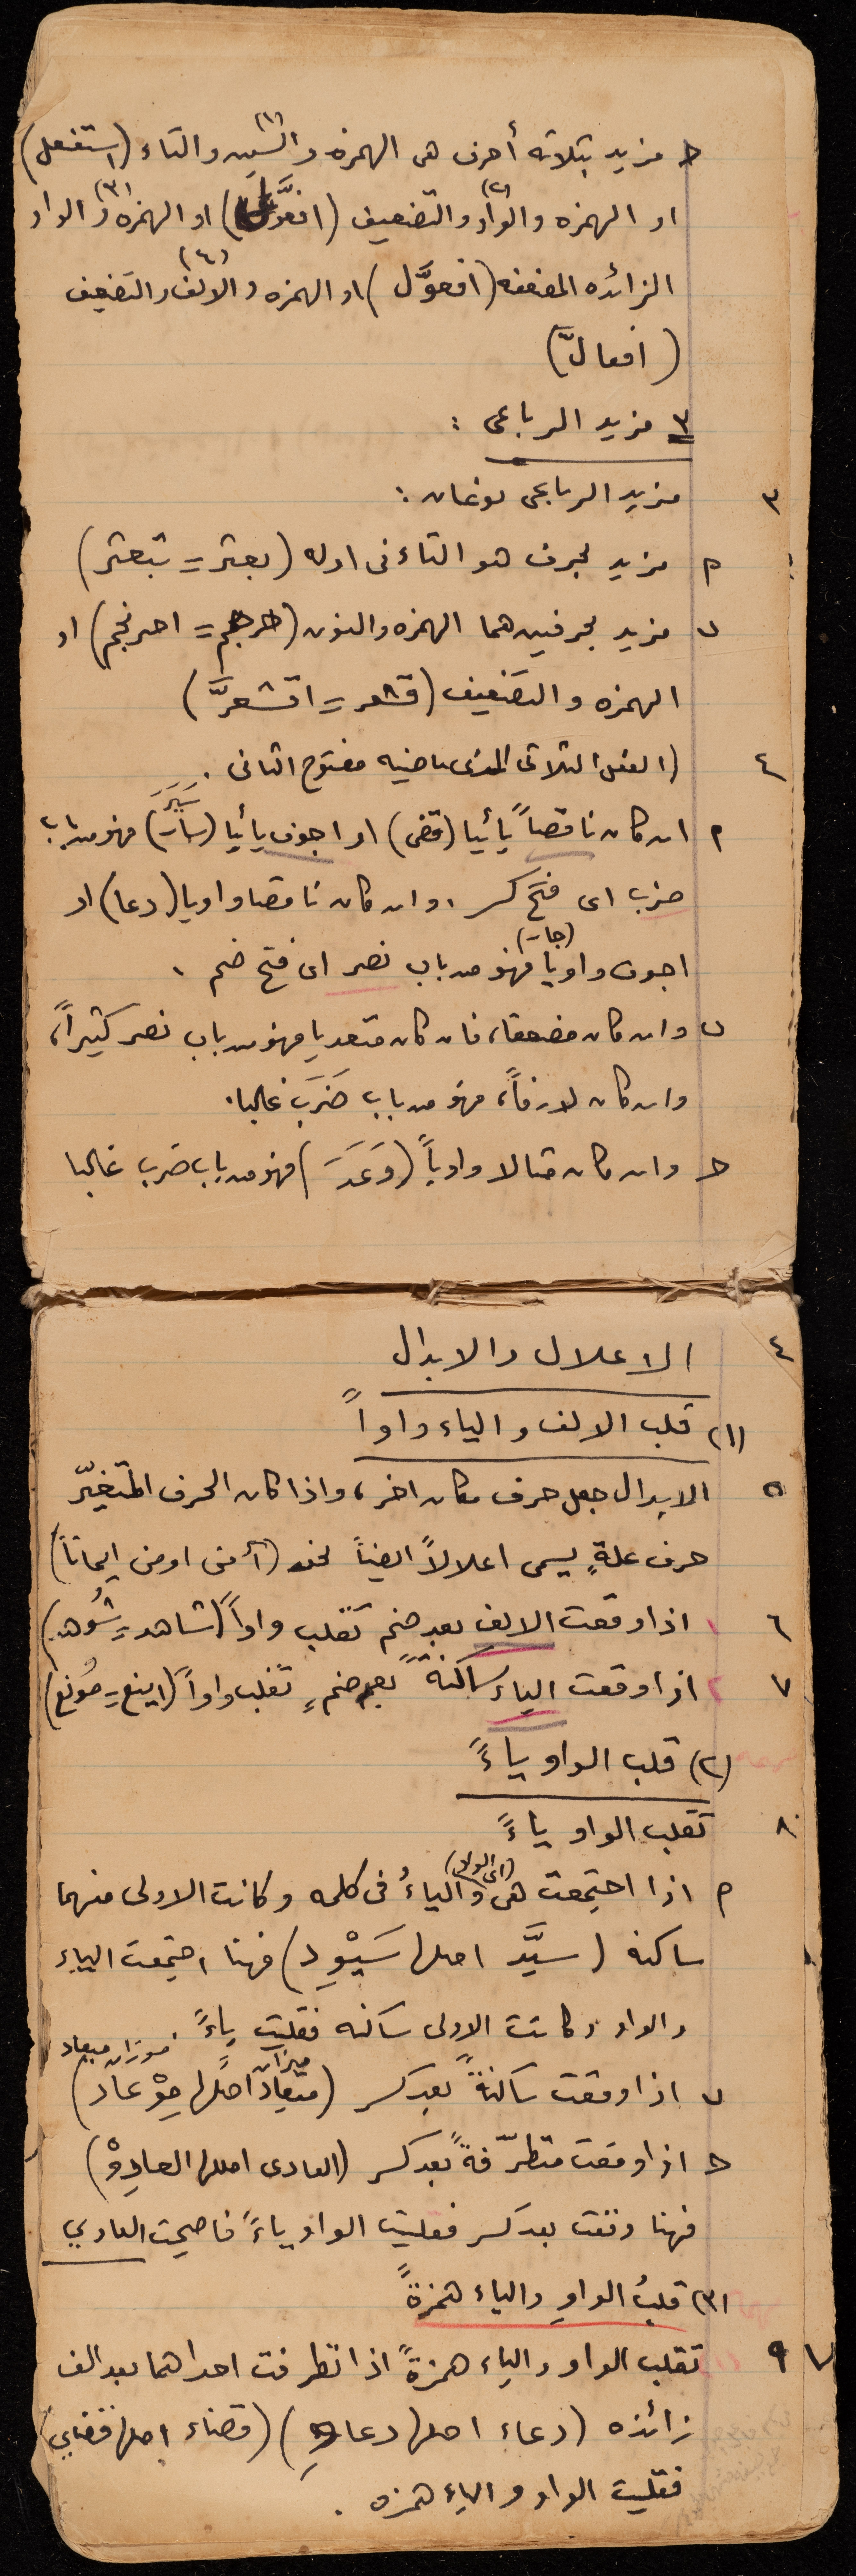 حـ مزيد بثلاثه أحرف هى الهمزه والسين (١) والتاء (استفعل)
او الهمزه والواو (٢) والتضعيف (افعوَّل) او الهمزه (٣) والواو
الزائده المضعفه (افعوَّل) او الهمزه والالف (٤) والتضعيف
(افعالَّ)
٣ مزيد الرباعى :
٣ مزيد الرباعى نوعان :
م مزيد بحرف هو التاء فى اوله (بعثر = تبعثر)
ب مزيد بحرفين هما الهمزه والنون (حرجم = احرنجم) او
الهمزه والتضعيف (قشعر = اقشعرَّ)
٤ (الفعل الثلاثى الذى ماضيه مفتوح الثانى .
م ان كان ناقصاً يائيا (قضى) او اجوف يائيا (سار) سَيَرَ فهو من باب
ضرب اى فتح كسر . وان كان ناقصا واويا (دعا) او
اجوف واويا (جار) فهو من باب نصر اى فتح ضم .
ب وان كان مضعفا، فان كان متعديا فهو من باب نصر كثيراً،
وان كان لازماً، فهو من باب ضَرَبَ غالبا.
حـ وان كان مثالا واوياً (وَعَدَ) فهو من باب ضرب غالبا
٤ الاعلال والابدال
(١) قلب الالف والياء واواً
٥ الابدال جعل حرف مكان اخر، واذا كان الحرف المتغيّر
حرف علةٍ يسمى اعلالاً ايضاً نحو (أمن اومن ايماناً)
٦ ١ اذا وقعت الالف بعد ضم تقلب واواً (شاهد = شُوهد)
٧ ٢ اذا وقعت الياء ساكنةً بعد ضمٍ تقلب واواً (اينع = مُونع)
(٢) قلب الواو ياءً
٨ تقلب الواو ياءً
م اذا اجتمعت هى (اى الواو) والياءُ فى كلمه وكانت الاولى منهما
ساكنه (سيَّد اصلها سَيْوِد) فهنا اجتمعت الياء
والواو وكانت الاولى ساكنه فقلبت ياءً .
موزان ميعاد
ب اذا وقعت ساكنةً بعد كسر (ميعاد ميزان اصلها مِوْعاد)
حـ اذا وقعت متطرّفةً بعد كسر (العادى اصلها العادِوْ)
فهنا وقعت بعد كسر فقلبت الواو ياءً فاصبحت العادي
(٣) قلبُ الواوِ والياء همزةً
٩ تقلب الواو والياء همزةً اذا تطرفت احداهما بعد الف
زائده (دعاء اصلها دعاو) (قضاء اصلها قضاي)
فقلبت الواو والياء همزه .